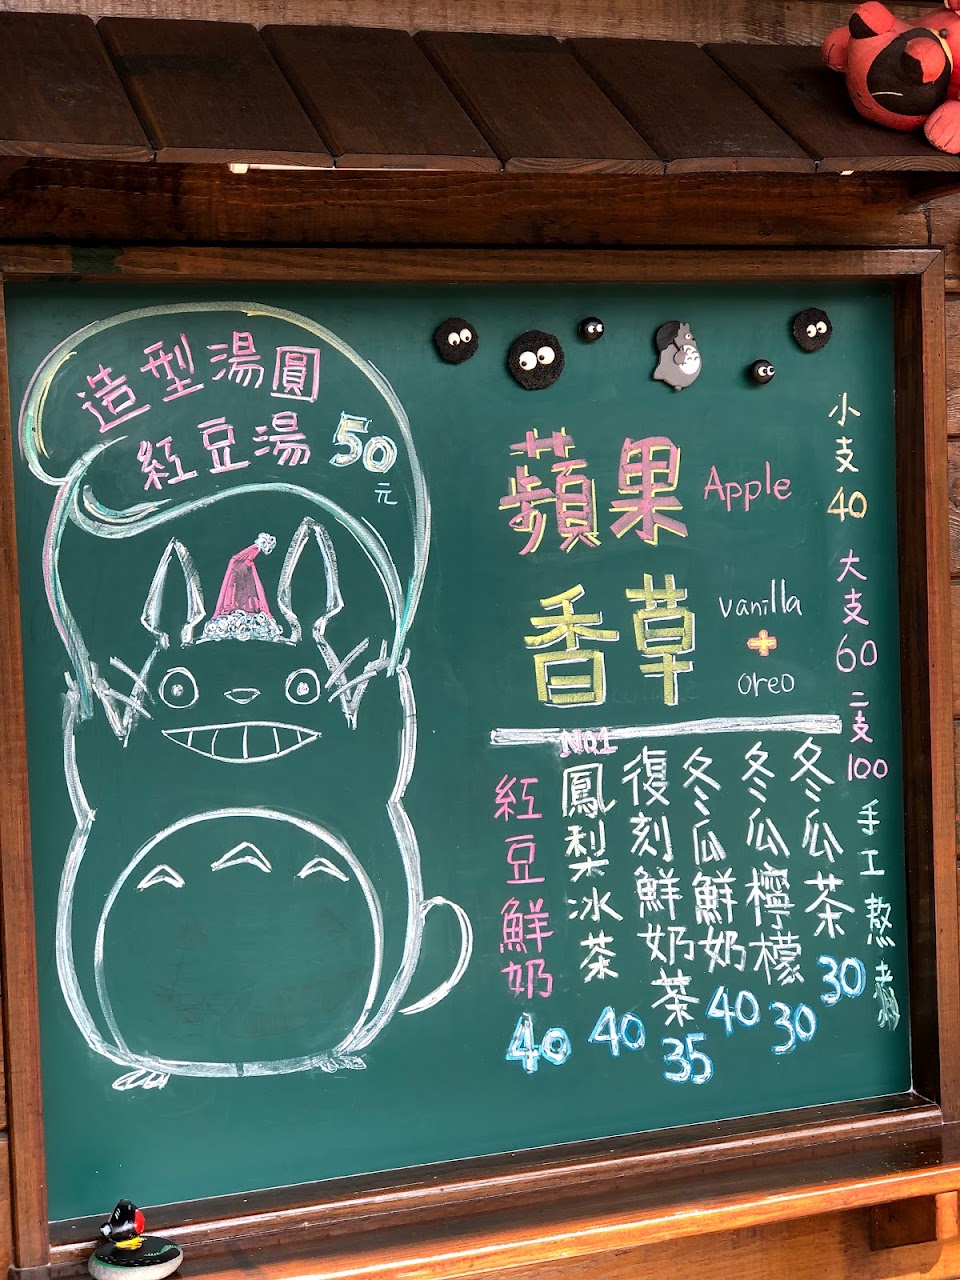 造型湯圓
紅豆湯 50元
蘋果 Apple
香草 vanilla
+
oreo
小支 40
大支 60
二支 100
手工熬煮
冬瓜茶 30
冬瓜檸檬 30
冬瓜鮮奶 40
復刻鮮奶茶 35
No.1
鳳梨冰茶 40
紅豆鮮奶 40